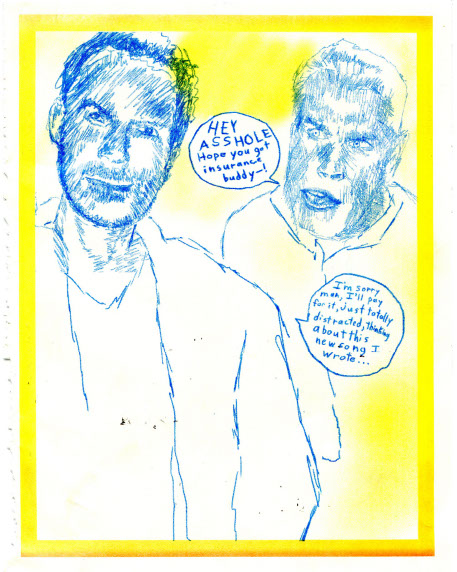 HEY
ASSHOLE
Hope you got
insurance
buddy—!
I'm sorry
man, I'll pay
for it, just totally
distracted, Thinking
about this
new song I
wrote...